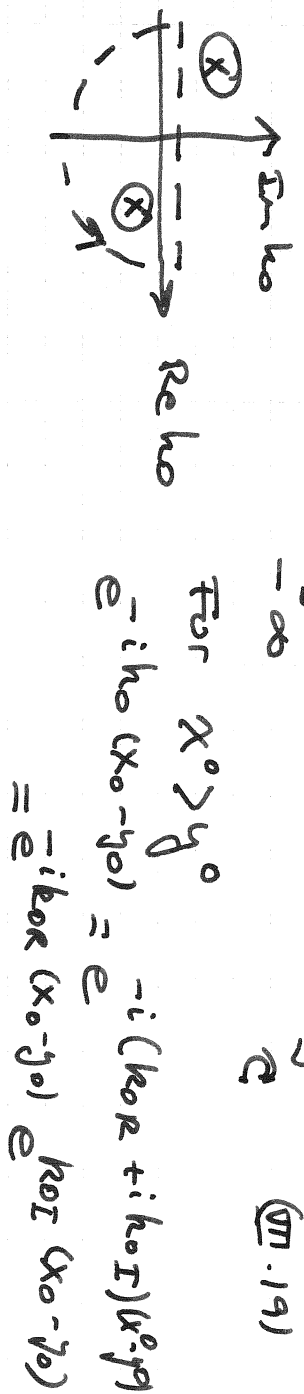 Im k₀
Re k₀
-∞ C (VII.19)
For x⁰ > y⁰
e^{-ik₀(x₀-y₀)} = e^{-i(k₀R + ik₀I)(x⁰-y⁰)}
= e^{-ik₀R(x₀-y₀)} e^{k₀I(x₀-y₀)}